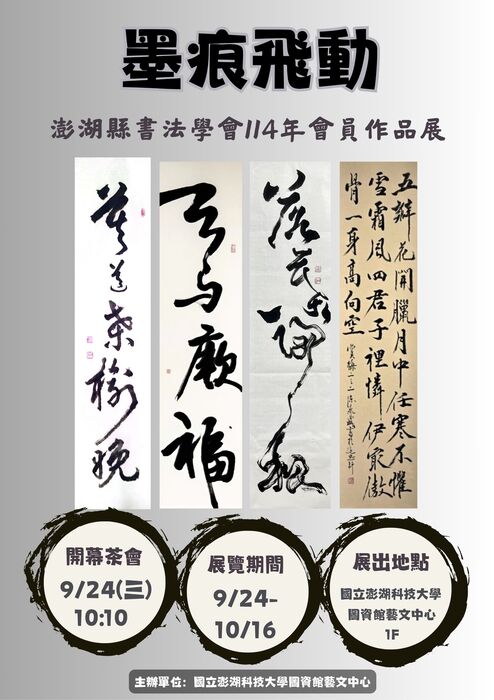 墨痕飛動
澎湖縣書法學會114年會員作品展
莫道桑榆晚
天与厥福
落花詩報
五瓣花開臘月中任寒不懼
雪霜風四君子裡憐伊最傲
骨一身高向空
開幕茶會
9/24(三)
10:10
展覽期間
9/24-
10/16
展出地點
國立澎湖科技大學
圖資館藝文中心
1F
主辦單位：國立澎湖科技大學圖資館藝文中心